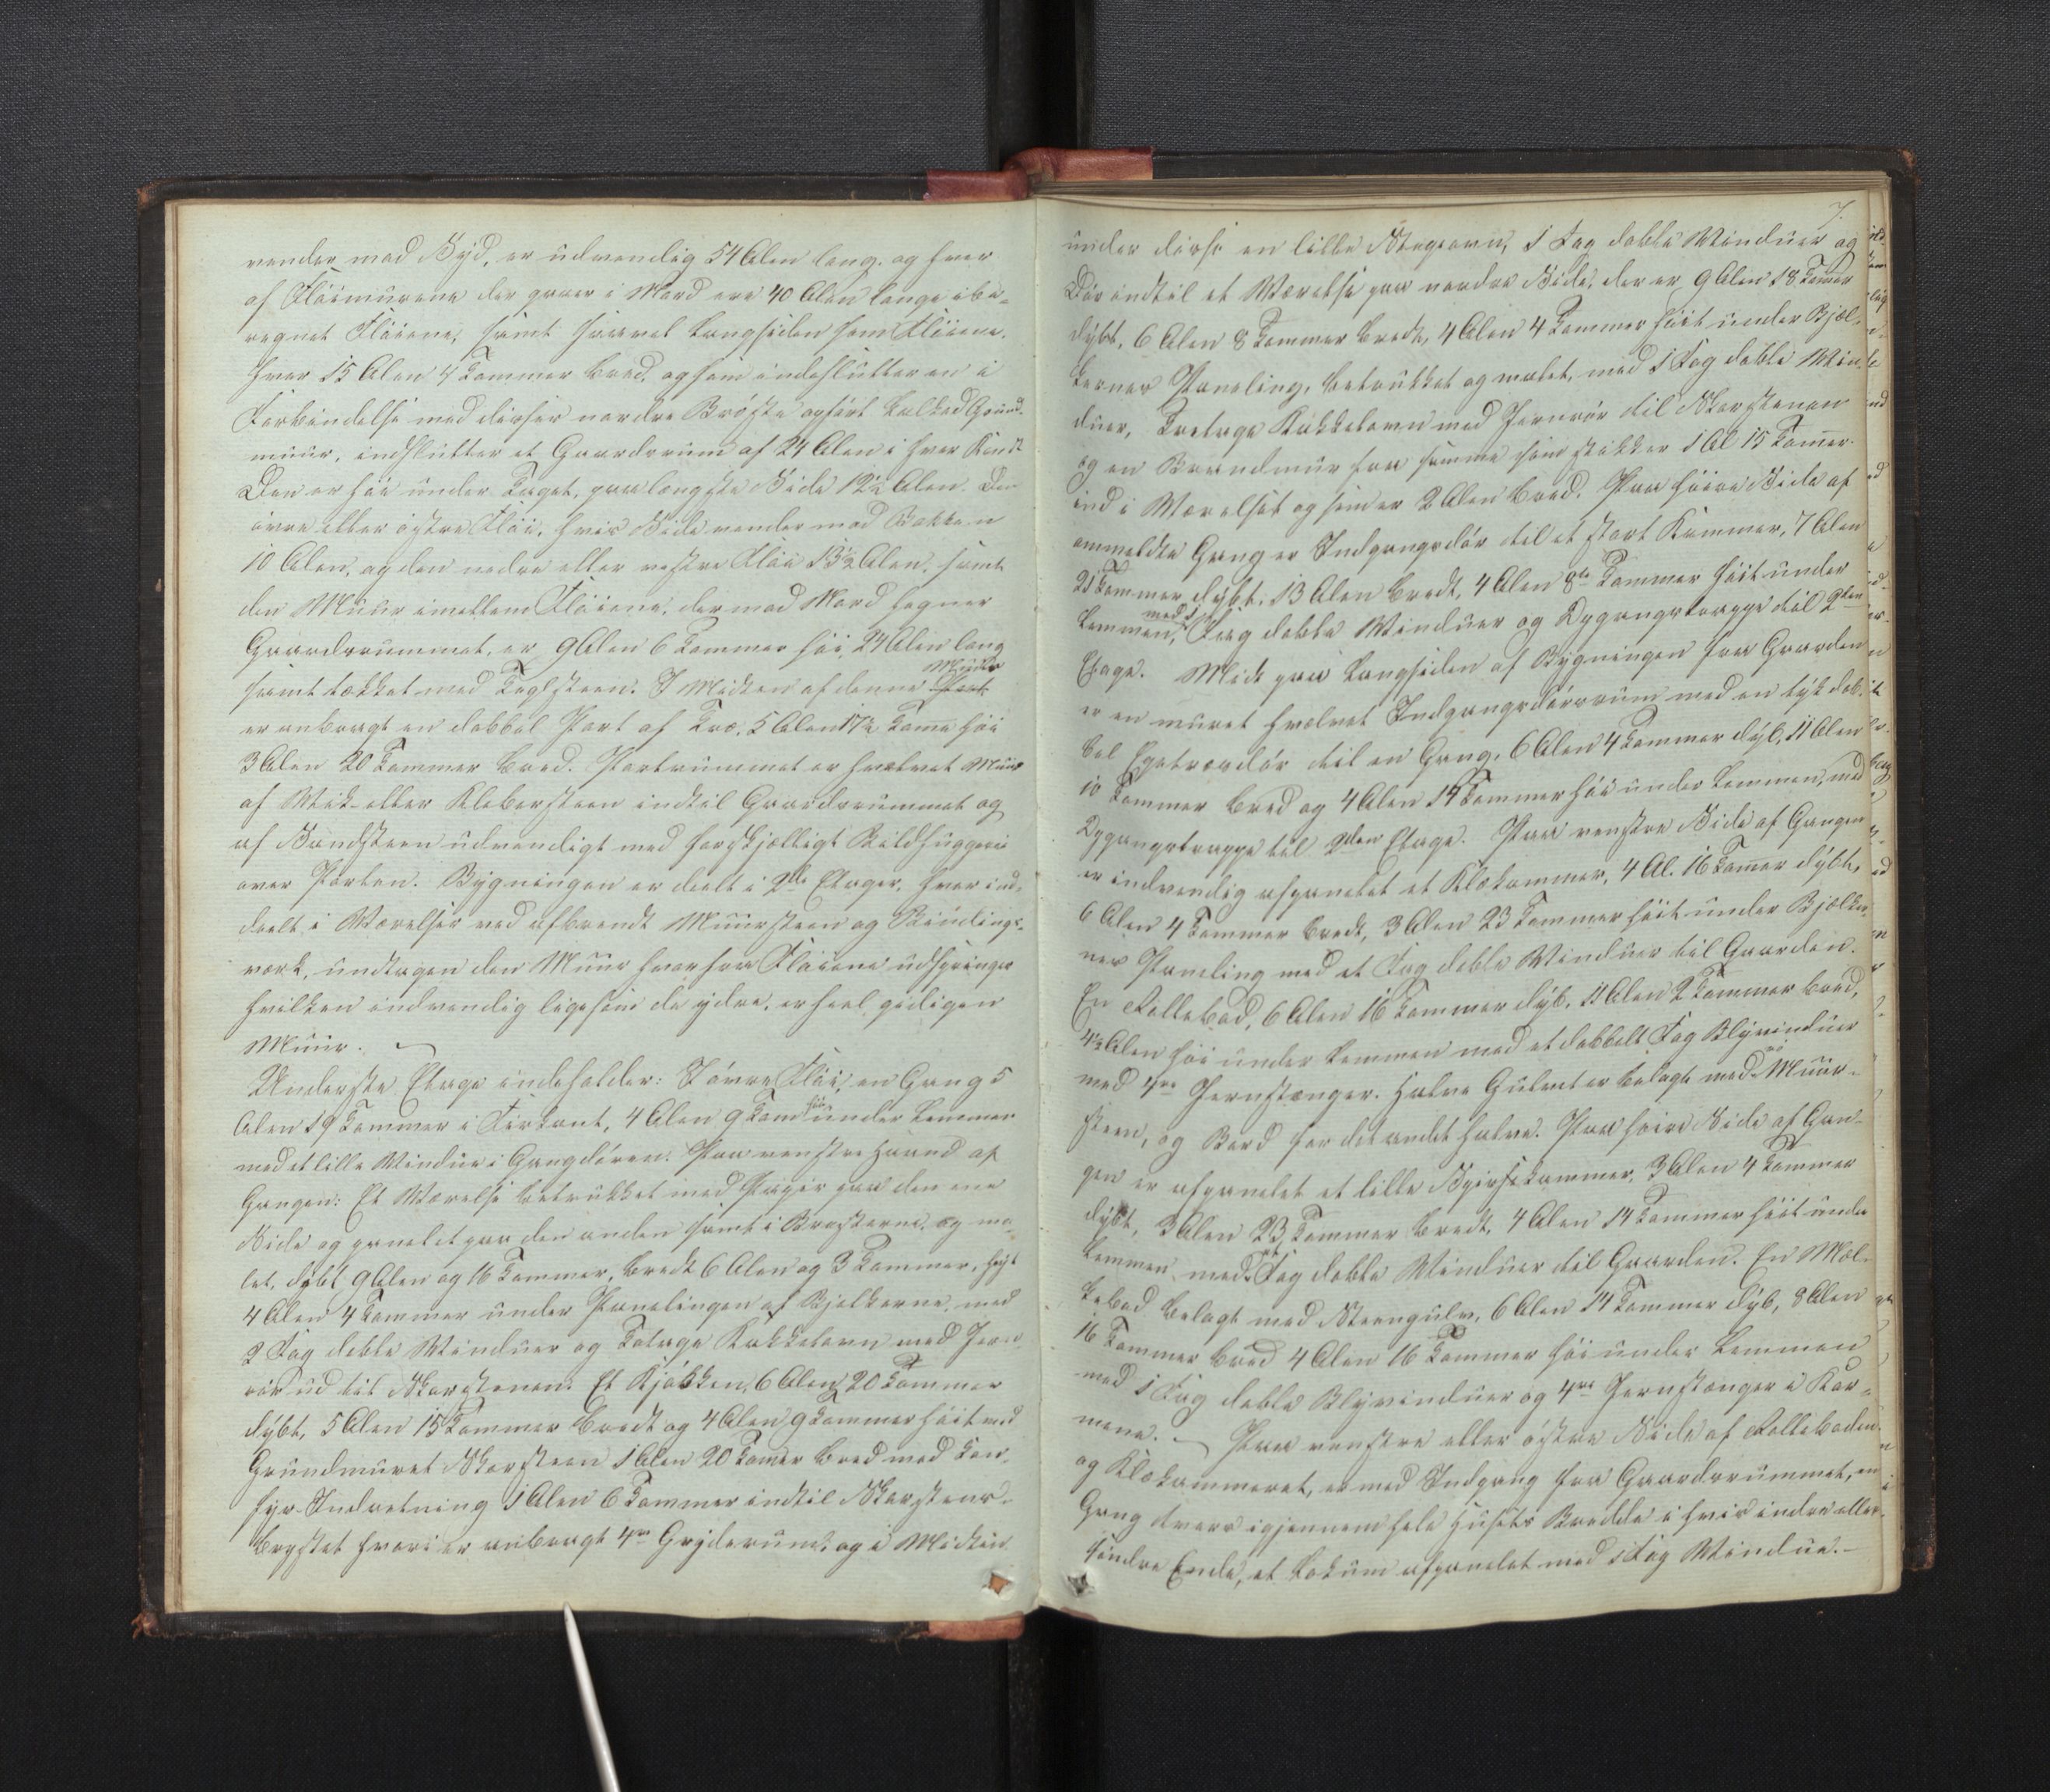 vender mod Syd, er udvendig 54 Alen lang og hver
af Flöimurene der gaaer i Nord ere 40 Alen lange ibe-
regnet Flöiene, samt saavel Langsiden som Flöiene,
hver 15 Alen 4 Tommer bred, og som indeslutter en i
Forbindelse med disses nordre Bröste opfört kalket Grund-
muur, indslutter et Gaardsrum af 24 Alen i hver Kant.
Den er höi under Taget, paa længste Side 12½ Alen. Den
övre eller östre Flöi, hvis Side vender mod Bakken
10 Alen, og den nedre eller vestre Flöi 13½ Alen, samt
den Muur imellem Flöiene, der mod Nord hegner
Gaardsrummet, er 9 Alen 6 Tommer höi, 24 Alen lang
samt tækket med Teglsteen. I Midten af denne Muur
er anbragt en dobbel Port af Træ, 5 Alen 17½ Tome höi
3 Alen 20 Tommer bred. Portrummet er hvælvet Muur
af Vik- eller Klebersteen indtil Gaardsrummet og
af Sandsteen udvendigt med forskjælligt Bildhuggeri
over Porten. Bygningen er deelt i 2de Etager, hver ind-
deelt i Værelser ved afbrændt Muursteen og Bindings-
værk, undtagen den Muur hvorfra Flöiene udspringer
hvilken indvendig ligesom de ydre, er heel gidigen
Muur.
Underste Etage indeholder: I övre Flöi, en Gang 5
Alen 19 Tommer i Firkant, 4 Alen 9 Tom höi under Lemmen
med et lille Vindue i Gangdören. Paa venstre Haand af
Gangen: Et Værelse betrukket med Papir paa den ene
Side og panelet paa den anden samt i Brösterne, og ma-
let, dybt 9 Alen og 16 Tommer, bredt 6 Alen og 3 Tommer, höit
4 Alen 4 Tommer under Panelingen af Bjelkerne, med
2 Fag doble Vinduer og Toetage Kakkelovn med Jern-
rör ud til Skorstenen. Et Kjökken, 6 Alen 20 Tommer
dybt, 5 Alen 15 Tommer bredt og 4 Alen 9 Tommer höit med
Grundmuret Skorsteen 1 Alen 20 Tomer bred med Kom-
fyr-Indretning 1 Alen 6 Tommer indtil Skorstens-
brystet hvori er anbragt 4re Gryderum, og i Midten
7.
under disse en lille Stegeovn, 1 Fag doble Vinduer og
Dör indtil et Værelse paa nordre Side, der er 9 Alen 18 Tomer
dybt, 6 Alen 8 Tommer bredt, 4 Alen 4 Tommer höit under Bjel-
kernes Paneling, betrukket og malet, med 1 Fag doble Vin-
duer, Treetage Kakkelovn med Jernrör til Skorstenen
og en Brandmur fra samme som stikker 1 Al 15 Tomer
ind i Værelset og som er 2 Alen bred. Paa höire Side af
ommeldte Gang er Indgangsdör til et stort Kammer, 7 Alen
21 Tommer dybt, 13 Alen bredt, 4 Alen 8te Tommer höit under
Lemmen, med 1 Fag doble Vinduer og Opgangstrappe til 2den
Etage. Midt paa Langsiden af Bygningen fra Gaarden
er en muret hvælvet Indgangsdörsrum med en tyk dob-
bel Egetræsdör til en Gang, 6 Alen 4 Tommer dyb, 11 Alen
10 Tommer bred og 4 Alen 14 Tommer höi under Lemmen, med
Opgangstrappe til 2den Etage. Paa venstre Side af Gangen
er indvendig afpanelet et Klækammer, 4 Al. 16 Tomer dybt,
6 Alen 4 Tommer bredt, 3 Alen 23 Tommer höit under Bjelker-
nes Paneling med et Fag doble Vinduer til Gaarden.
En Rullebod, 6 Alen 16 Tommer dyb, 11 Alen 2 Tommer bred,
4½ Alen höi under Lemmen med et dobbelt Fag Blyvinduer
med 4re Jernstænger. Halve Gulvet er belagt med Muur-
steen, og Bord for det andet halve. Paa höire Side af Gan-
gen er afpanelet et lille Spisekammer, 3 Alen 4 Tommer
dybt, 3 Alen 23 Tommer bredt, 4 Alen 14 Tommer höit under
Lemmen med et Fag doble Vinduer til Gaarden. En Mel-
kebod belagt med Steengulv, 6 Alen 14 Tommer dyb, 8 Alen
16 Tommer bred 4 Alen 16 Tommer höi under Lemmen
med 1 Fag doble Blyvinduer og 4re Jernstænger i Kar-
mene. – Paa venstre eller östre Side af Rulleboden
og Klækammeret, er med Indgang fra Gaardsrummet, en
Gang tvers igjennem hele Husets Bredde i hvis indre eller
söndre Ende, et Lokum afpanelet med 1 Fag Vindue.–